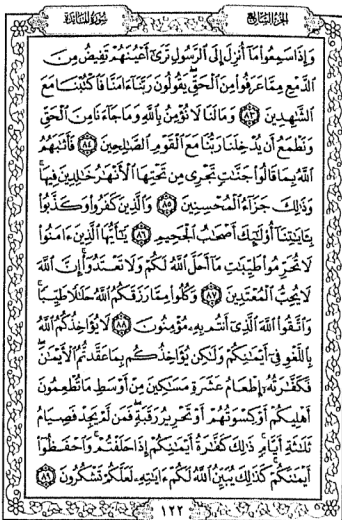 الجزء السابع
سورة المائدة
وَإِذَا سَمِعُوا۟ مَآ أُنزِلَ إِلَى ٱلرَّسُولِ تَرَىٰٓ أَعْيُنَهُمْ تَفِيضُ مِنَ
ٱلدَّمْعِ مِمَّا عَرَفُوا۟ مِنَ ٱلْحَقِّ يَقُولُونَ رَبَّنَآ ءَامَنَّا فَٱكْتُبْنَا مَعَ
ٱلشَّٰهِدِينَ ٨٣ وَمَا لَنَا لَا نُؤْمِنُ بِٱللَّهِ وَمَا جَآءَنَا مِنَ ٱلْحَقِّ
وَنَطْمَعُ أَن يُدْخِلَنَا رَبُّنَا مَعَ ٱلْقَوْمِ ٱلصَّٰلِحِينَ ٨٤ فَأَثَٰبَهُمُ
ٱللَّهُ بِمَا قَالُوا۟ جَنَّٰتٍ تَجْرِى مِن تَحْتِهَا ٱلْأَنْهَٰرُ خَٰلِدِينَ فِيهَا
وَذَٰلِكَ جَزَآءُ ٱلْمُحْسِنِينَ ٨٥ وَٱلَّذِينَ كَفَرُوا۟ وَكَذَّبُوا۟
بِـَٔايَٰتِنَآ أُو۟لَٰٓئِكَ أَصْحَٰبُ ٱلْجَحِيمِ ٨٦ يَٰٓأَيُّهَا ٱلَّذِينَ ءَامَنُوا۟
لَا تُحَرِّمُوا۟ طَيِّبَٰتِ مَآ أَحَلَّ ٱللَّهُ لَكُمْ وَلَا تَعْتَدُوٓا۟ إِنَّ ٱللَّهَ
لَا يُحِبُّ ٱلْمُعْتَدِينَ ٨٧ وَكُلُوا۟ مِمَّا رَزَقَكُمُ ٱللَّهُ حَلَٰلًا طَيِّبًا
وَٱتَّقُوا۟ ٱللَّهَ ٱلَّذِىٓ أَنتُم بِهِۦ مُؤْمِنُونَ ٨٨ لَا يُؤَاخِذُكُمُ ٱللَّهُ
بِٱللَّغْوِ فِىٓ أَيْمَٰنِكُمْ وَلَٰكِن يُؤَاخِذُكُم بِمَا عَقَّدتُّمُ ٱلْأَيْمَٰنَ
فَكَفَّٰرَتُهُۥٓ إِطْعَامُ عَشَرَةِ مَسَٰكِينَ مِنْ أَوْسَطِ مَا تُطْعِمُونَ
أَهْلِيكُمْ أَوْ كِسْوَتُهُمْ أَوْ تَحْرِيرُ رَقَبَةٍ فَمَن لَّمْ يَجِدْ فَصِيَامُ
ثَلَٰثَةِ أَيَّامٍ ذَٰلِكَ كَفَّٰرَةُ أَيْمَٰنِكُمْ إِذَا حَلَفْتُمْ وَٱحْفَظُوٓا۟
أَيْمَٰنَكُمْ كَذَٰلِكَ يُبَيِّنُ ٱللَّهُ لَكُمْ ءَايَٰتِهِۦ لَعَلَّكُمْ تَشْكُرُونَ ٨٩
١٢٢